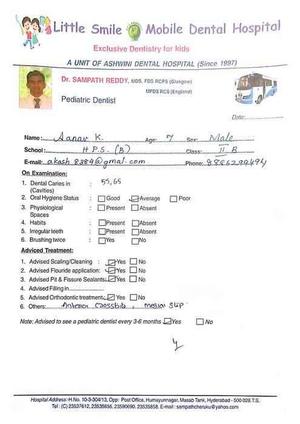 Little Smile Mobile Dental Hospital
Exclusive Dentistry for kids
A UNIT OF ASHWINI DENTAL HOSPITAL (Since 1997)
Dr. SAMPATH REDDY, MDS, FDS RCPS (Glasgow)
MPDS RCS (England)
Pediatric Dentist
Date:
Name: Aanav K. Age: 7 Sex: Male
School: H.P.S. (B) Class: II B
E-mail: akash.8384@gmail.com Phone:
On Examination:
1. Dental Caries in (Cavities) : 55,65
2. Oral Hygiene Status : Good Average Poor
3. Physiological Spaces : Present Absent
4. Habits : Present Absent
5. Irregular teeth : Present Absent
6. Brushing twice : Yes No
Adviced Treatment:
1. Advised Scaling/Cleaning : Yes No
2. Advised Flouride application: Yes No
3. Advised Pit & Fissure Sealants: Yes No
4. Advised Filling in
5. Advised Orthodontic treatment: Yes No
6. Others: Anterior Crossbite,
Note: Advised to see a pediatric dentist every 3-6 months Yes No
Hospital Address: H.No. 10-3-304/13, Opp: Post Office, Humayunnagar, Masab Tank, Hyderabad - 500 028 T.S.
Tel: (C) 23537612, 23535656, 23590690, 23535858. E-mail: sampathcheruku@yahoo.com